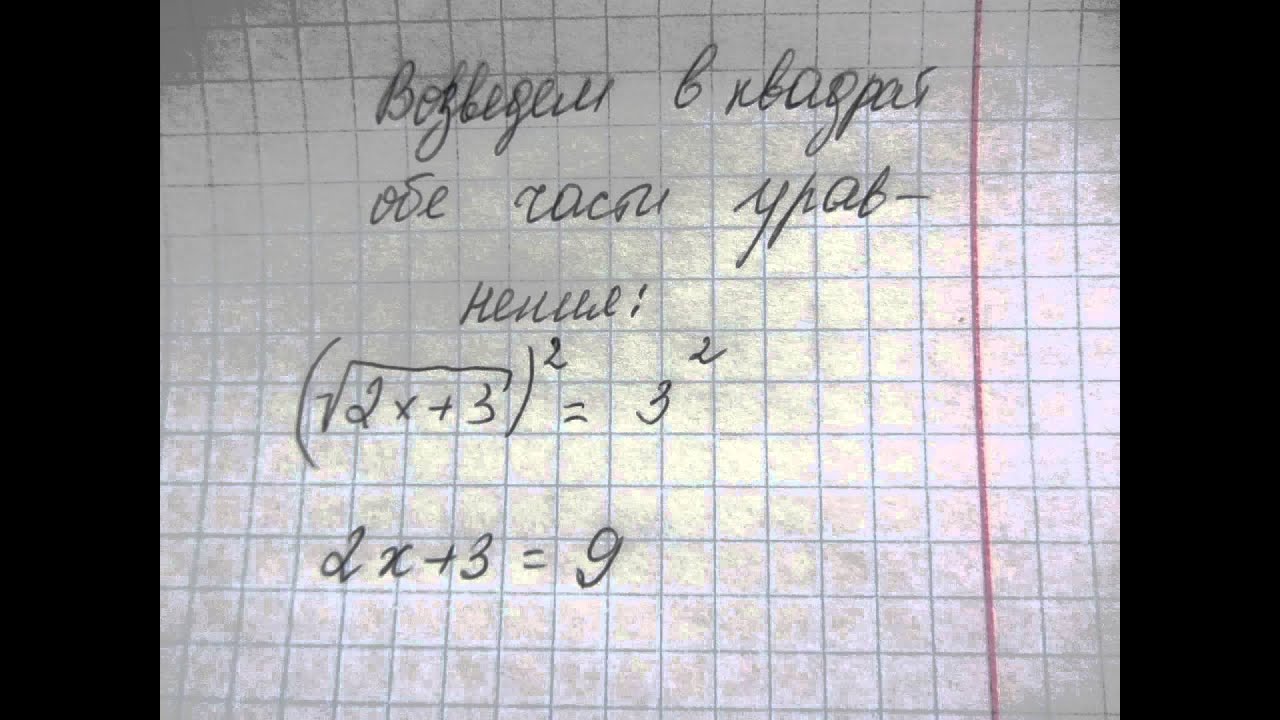 Возведем в квадрат
обе части урав-
нения:
(√2x+3)² = 3²
2x+3 = 9